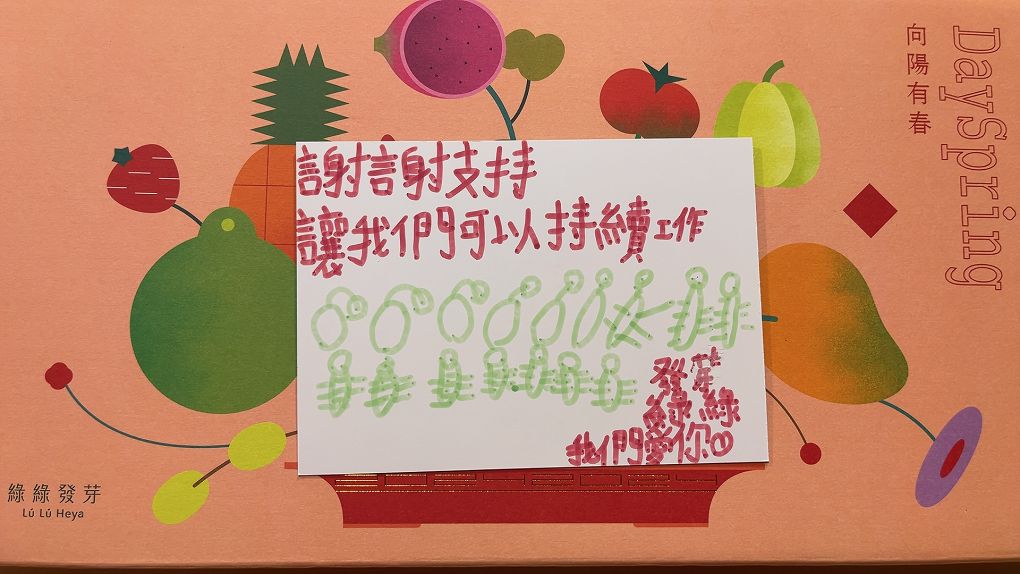 DaySpring
向陽有春
謝謝支持
讓我們可以持續工作
發芽
綠綠
我們愛你
綠綠發芽
Lú Lú Heya